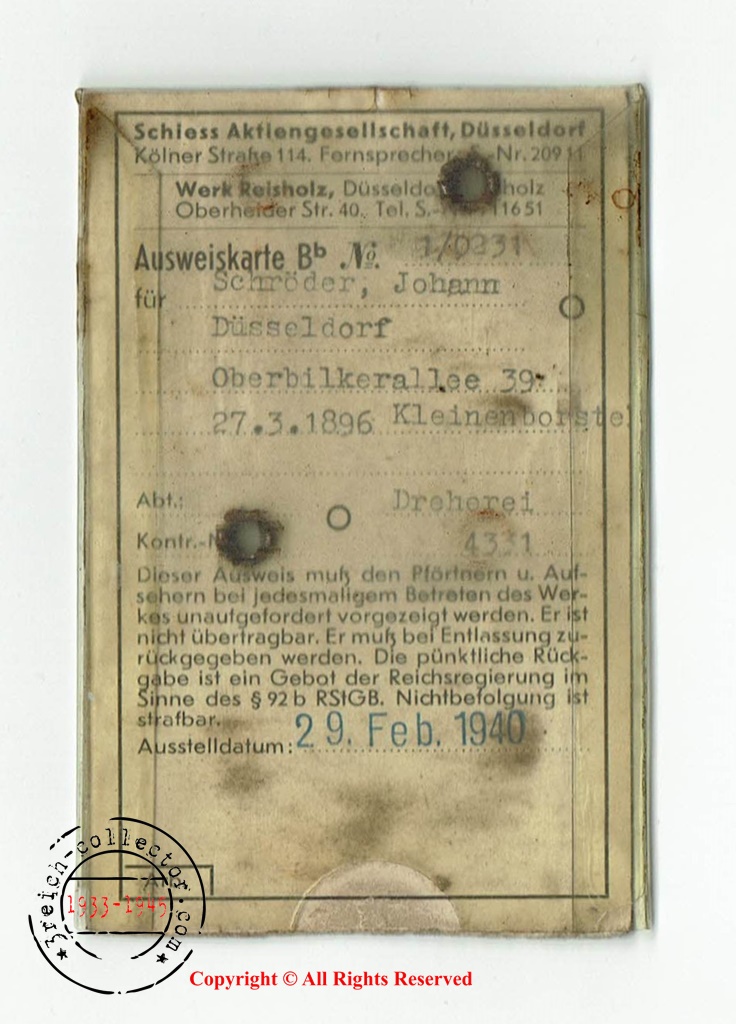 Schiess Aktiengesellschaft, Düsseldorf
Kölner Straße 114. Fernsprecher Nr. 20911
Werk Reisholz, Düsseldorf holz
Oberheider Str. 40. Tel. S.- 11651
Ausweiskarte Bᵇ №. 1/0231
für Schröder, Johann
Düsseldorf
Oberbilkerallee 39
27.3.1896 Kleinenborstel
Abt.: Dreherei
Kontr.-N 4331
Dieser Ausweis muß den Pförtnern u. Auf-
sehern bei jedesmaligem Betreten des Wer-
kes unaufgefordert vorgezeigt werden. Er ist
nicht übertragbar. Er muß bei Entlassung zu-
rückgegeben werden. Die pünktliche Rück-
gabe ist ein Gebot der Reichsregierung im
Sinne des § 92 b RStGB. Nichtbefolgung ist
strafbar.
Ausstelldatum: 29. Feb. 1940
3reich-collector.com
1933-1945
Copyright © All Rights Reserved